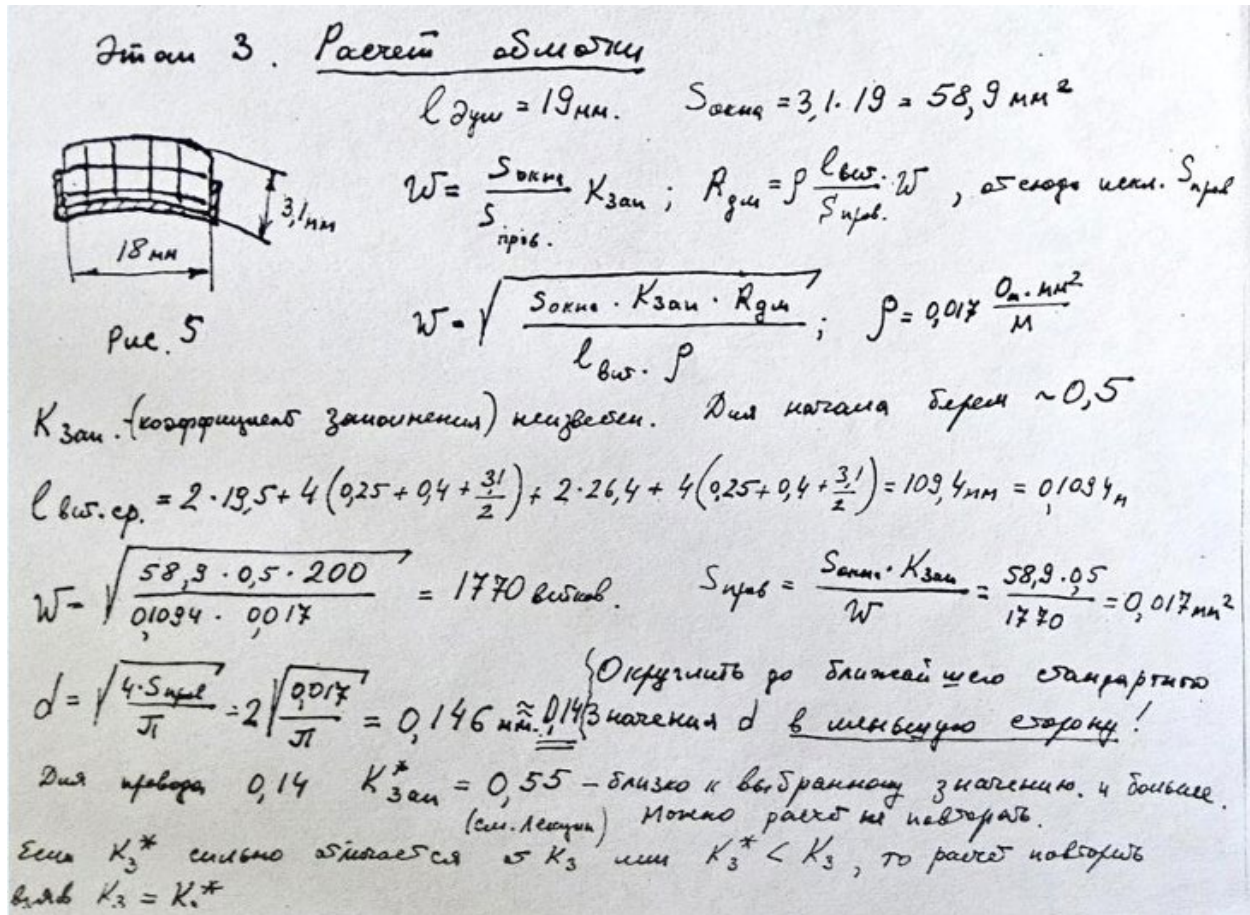 Этап 3. Расчет обмотки
l душ = 19 мм. Sокна = 3,1 · 19 = 58,9 мм²
W = Sокна / Sпров. Kзап ; Rдм = ρ lвит. / Sпров. · W , отсюда искл. Sпров
3,1 мм
18 мм
W = √(Sокна · Kзап · Rдм / lвит. · ρ) ; ρ = 0,017 Ом·мм² / м
Рис. 5
Kзап. (коэффициент заполнения) неизвестен. Для начала берем ~0,5
l вит. ср. = 2·19,5 + 4(0,25 + 0,4 + 3,1/2) + 2·26,4 + 4(0,25 + 0,4 + 3,1/2) = 109,4 мм = 0,1094 м
W = √(58,9 · 0,5 · 200 / 0,1094 · 0,017) = 1770 витков. Sпров = Sокна · Kзап / W = 58,9 · 0,5 / 1770 = 0,017 мм²
d = √(4·Sпров / π) = 2√(0,017 / π) = 0,146 мм. ≈ 0,14 { Округлить до ближайшего стандартного
значения d в меньшую сторону!
Для провода 0,14 K*зап = 0,55 – близко к выбранному значению. и больше.
(см. лекции) Можно расчёт не повторять.
Если Kз* сильно отличается от Kз или Kз* < Kз, то расчёт повторить
взяв Kз = Kз*